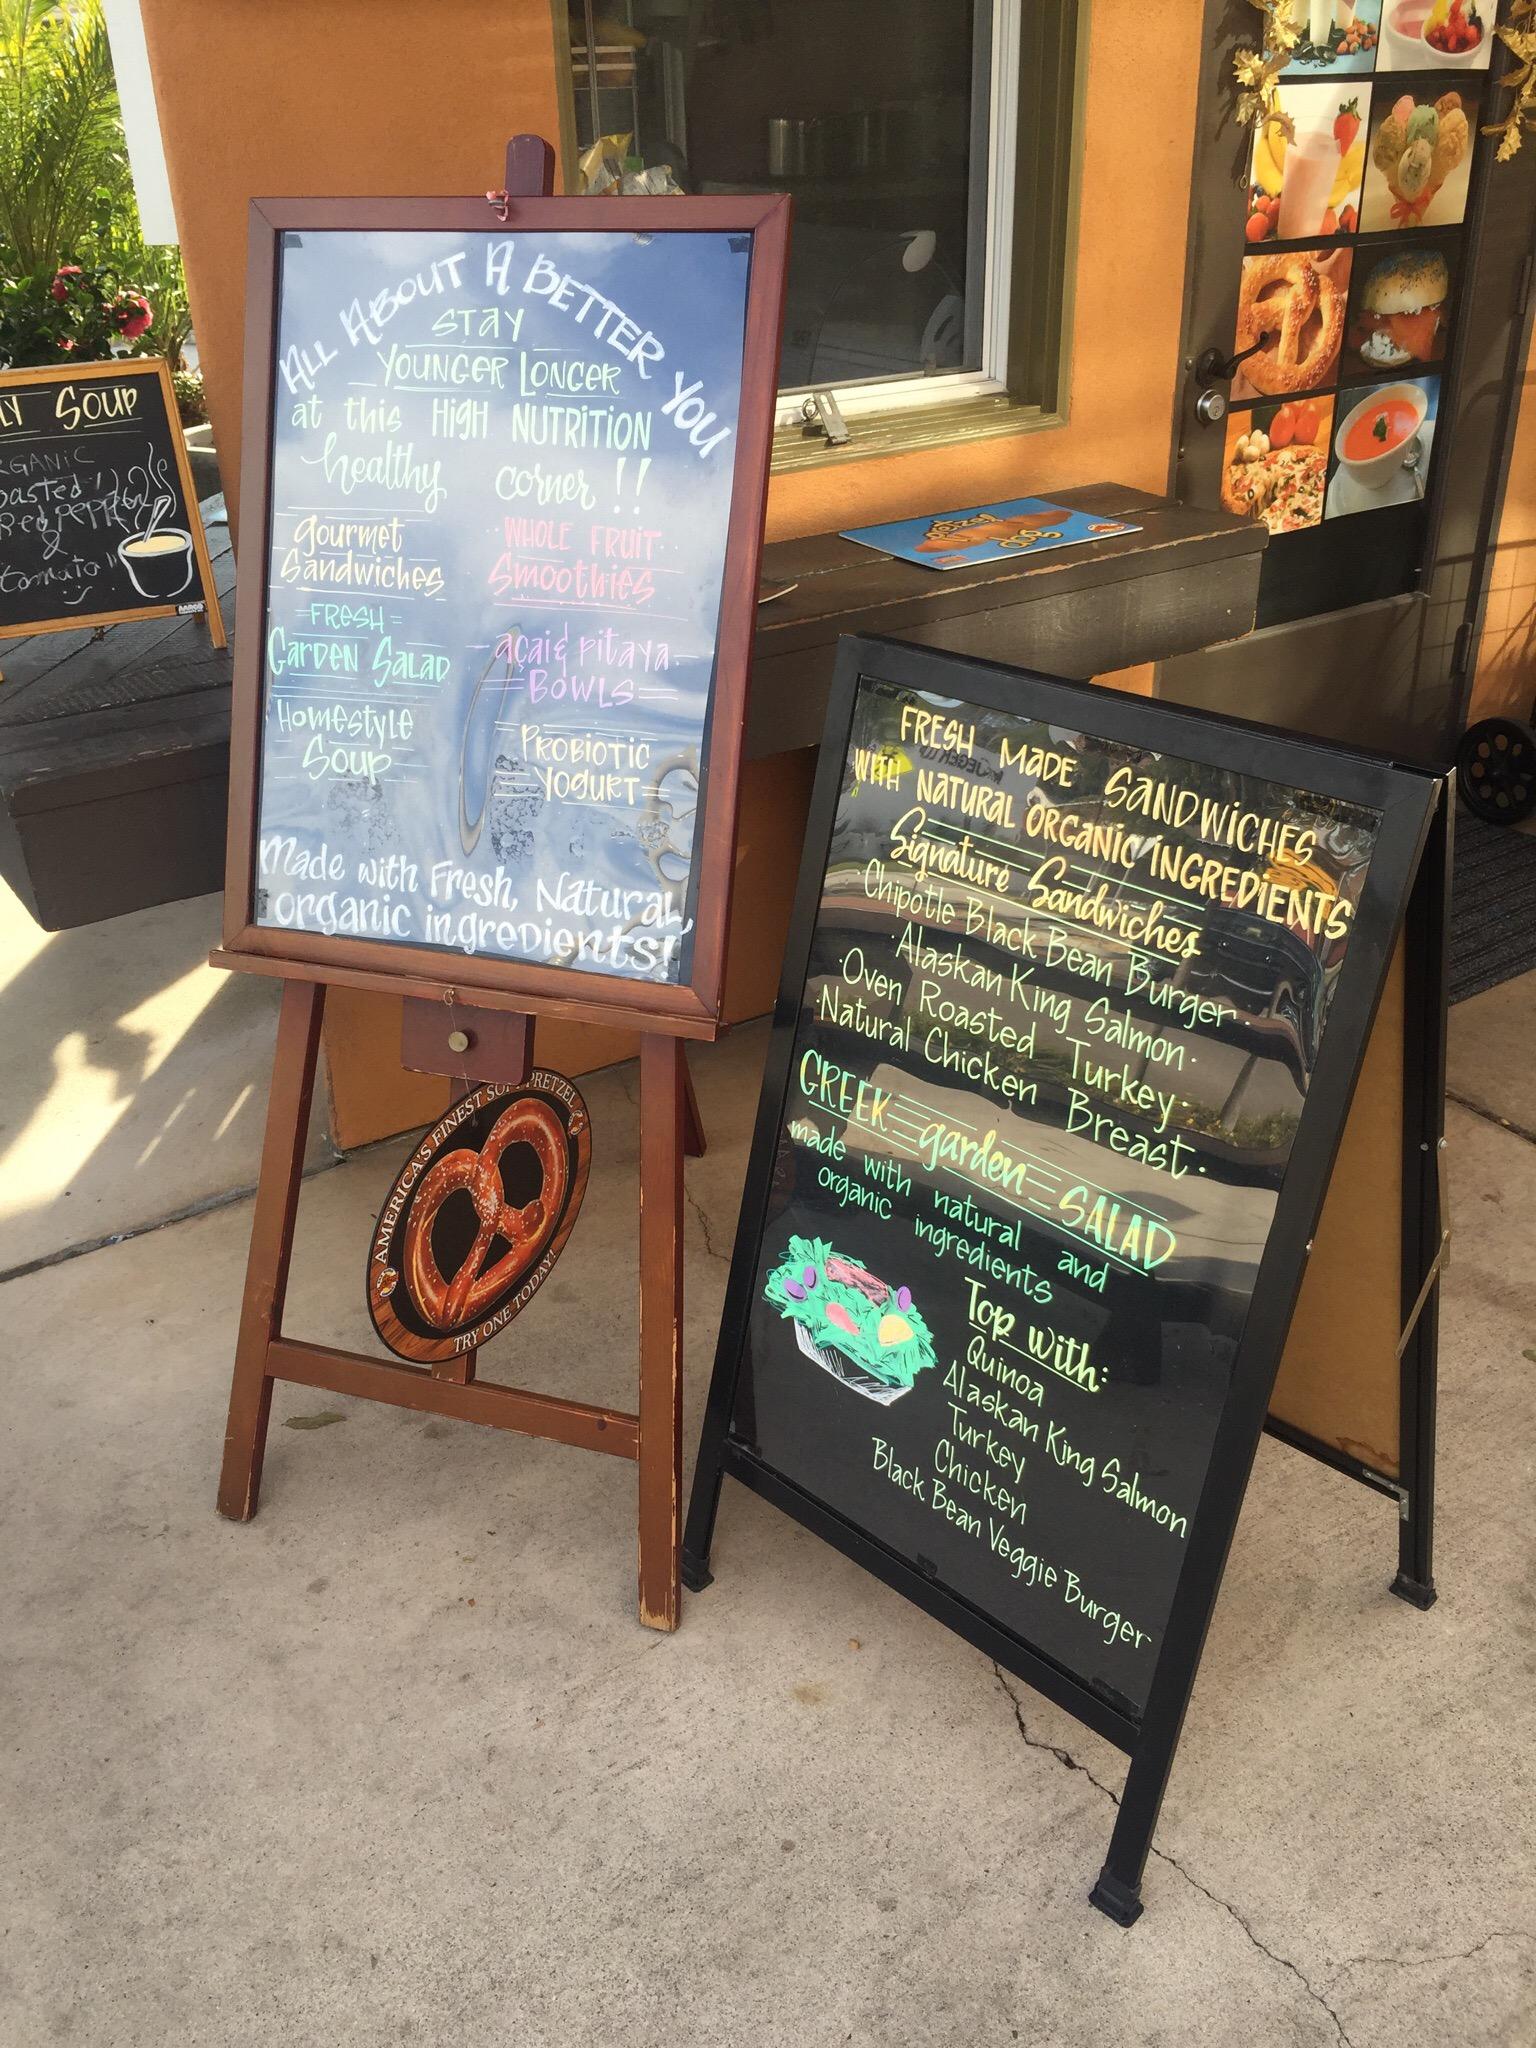 SOUP
ORGANIC
Roasted
Red pepper
&
tomato
ALL ABOUT A BETTER YOU
STAY
YOUNGER LONGER
at this HIGH NUTRITION
healthy corner!!
Gourmet
Sandwiches
FRESH
GARDEN SALAD
HOMESTYLE
SOUP
WHOLE FRUIT
SMOOTHIES
açai & pitaya
BOWLS
PROBIOTIC
YOGURT
Made with Fresh, Natural,
organic ingredients!
AMERICA'S FINEST SOFT PRETZEL
TRY ONE TODAY!
FRESH MADE SANDWICHES
WITH NATURAL ORGANIC INGREDIENTS
Signature Sandwiches
·Chipotle Black Bean Burger·
·Alaskan King Salmon·
·Oven Roasted Turkey·
·Natural Chicken Breast·
GREEK garden SALAD
made with natural and
organic ingredients
Top with:
Quinoa
Alaskan King Salmon
Turkey
Chicken
Black Bean Veggie Burger